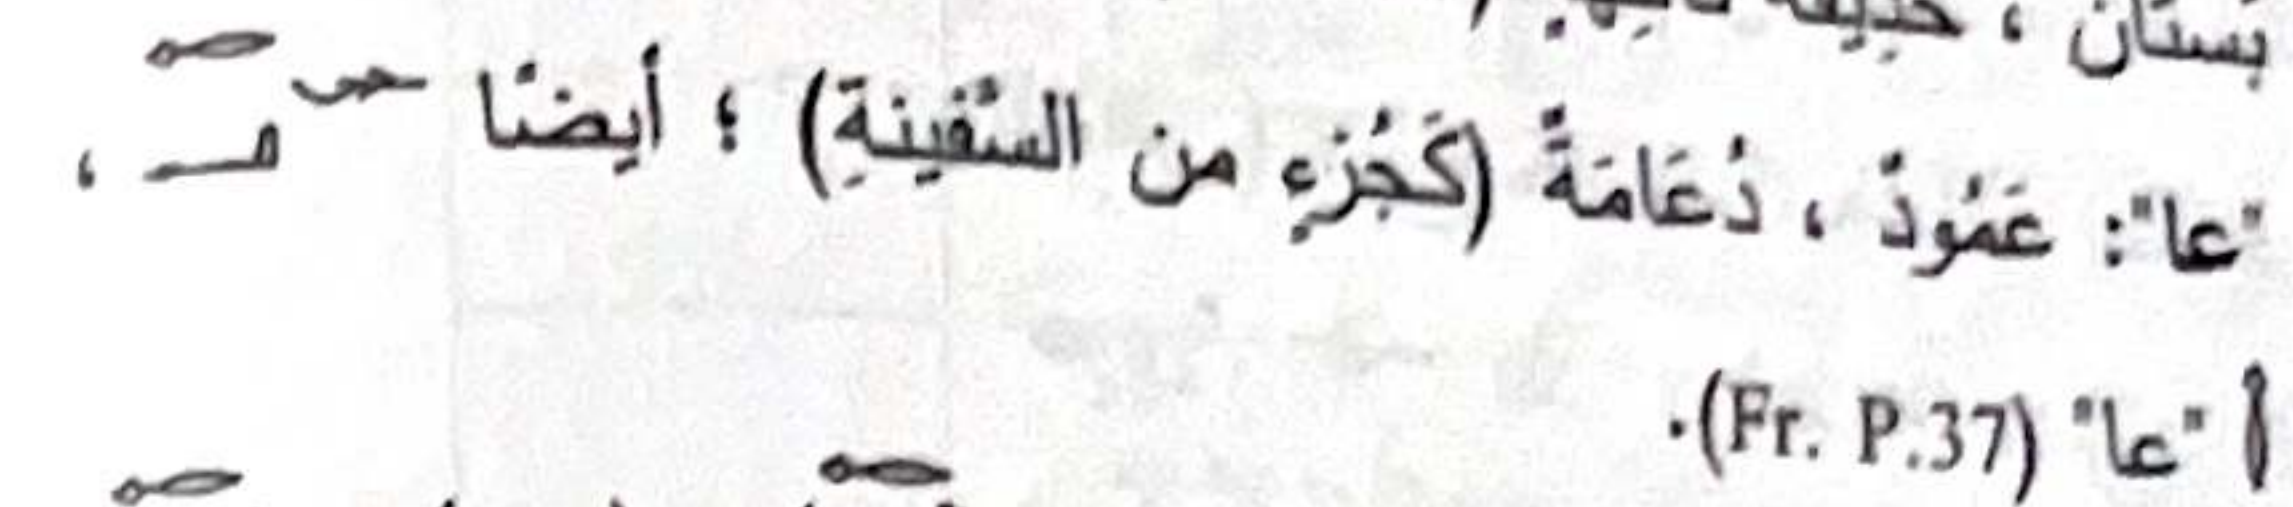 بستان ، حديقة
"عا": عَمُودٌ ، دُعَامَةٌ (كَجُزْءٍ من السَّفينةِ) ؛ أيضًا ،
"عا" (Fr. P.37).